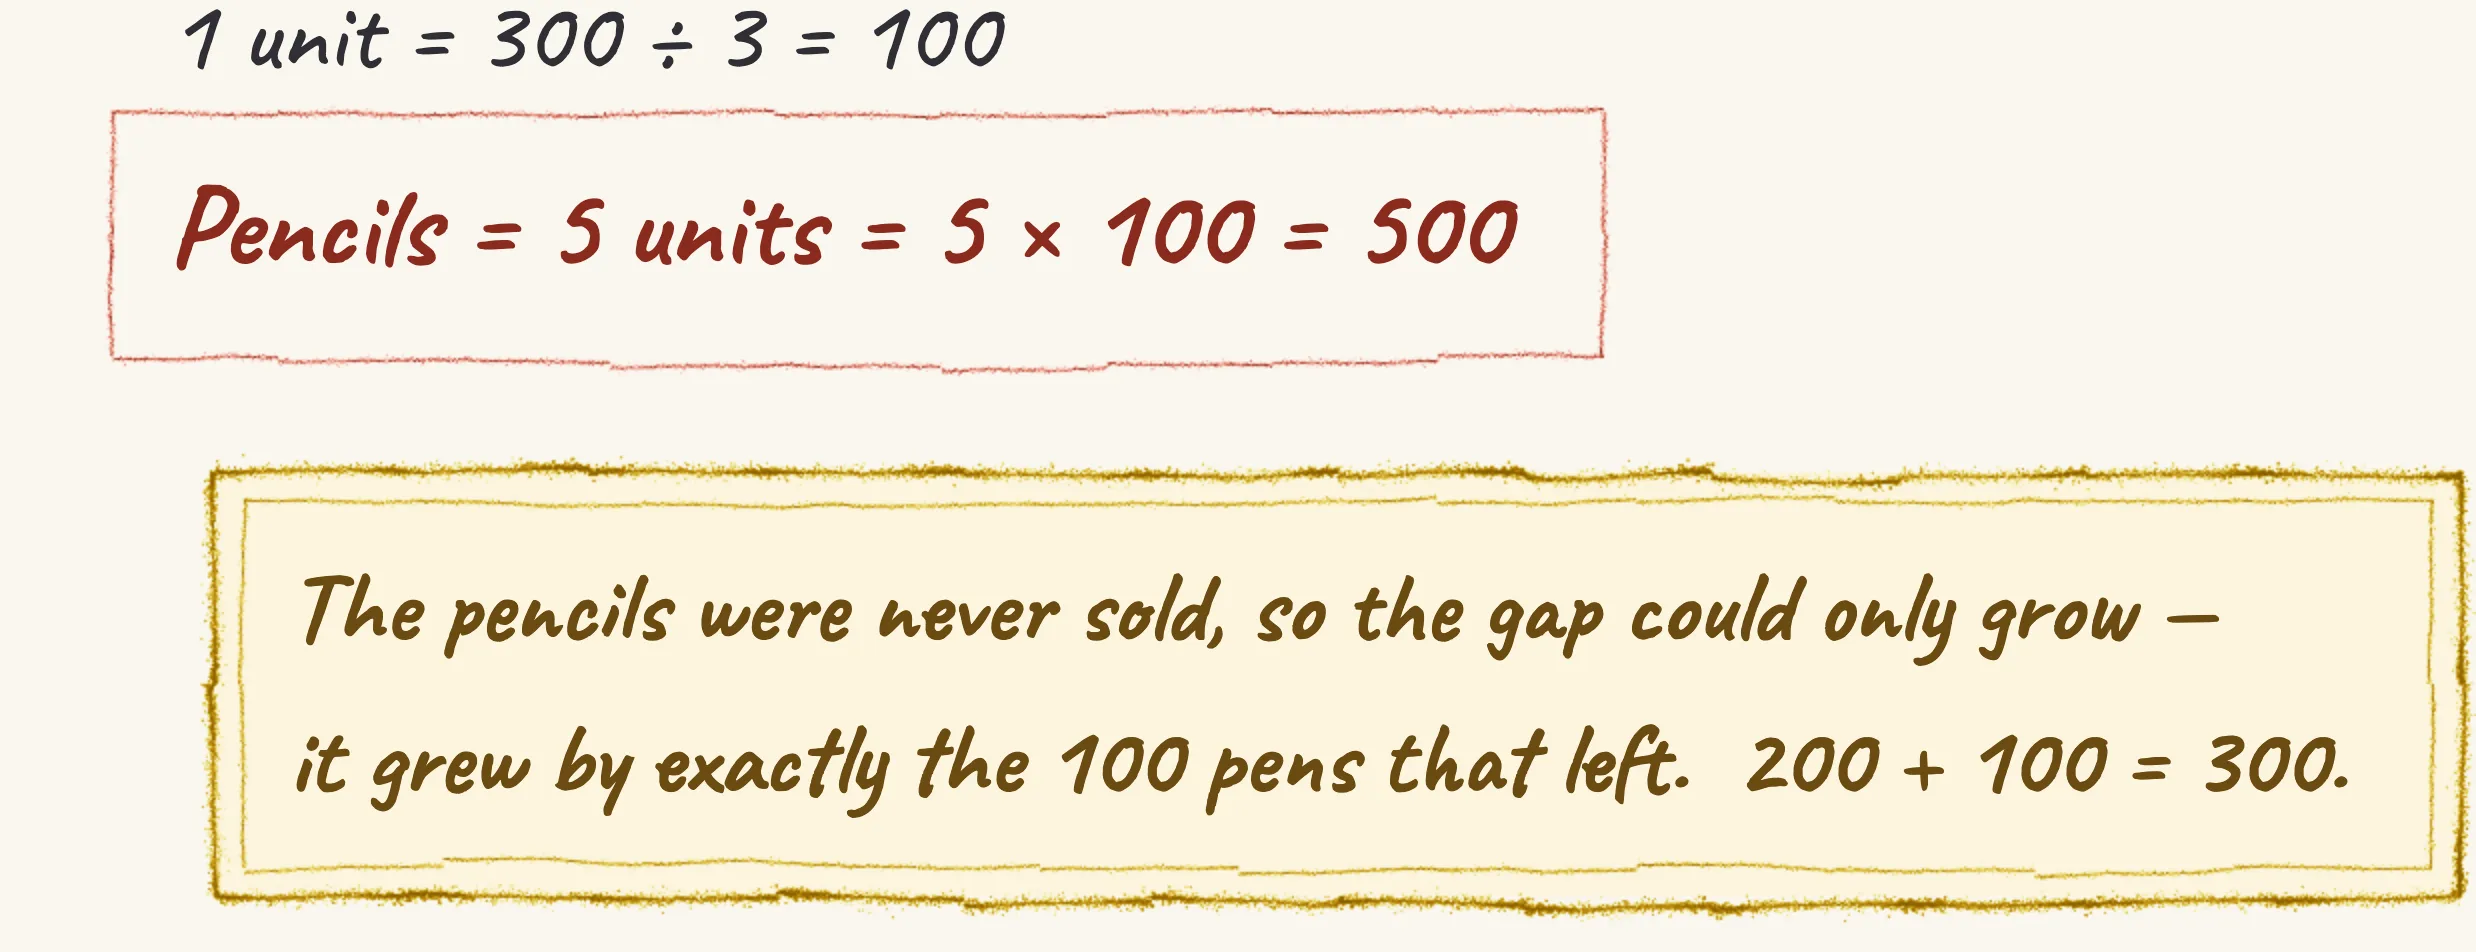 1 unit = 300 ÷ 3 = 100
Pencils = 5 units = 5 × 100 = 500
The pencils were never sold, so the gap could only grow –
it grew by exactly the 100 pens that left. 200 + 100 = 300.